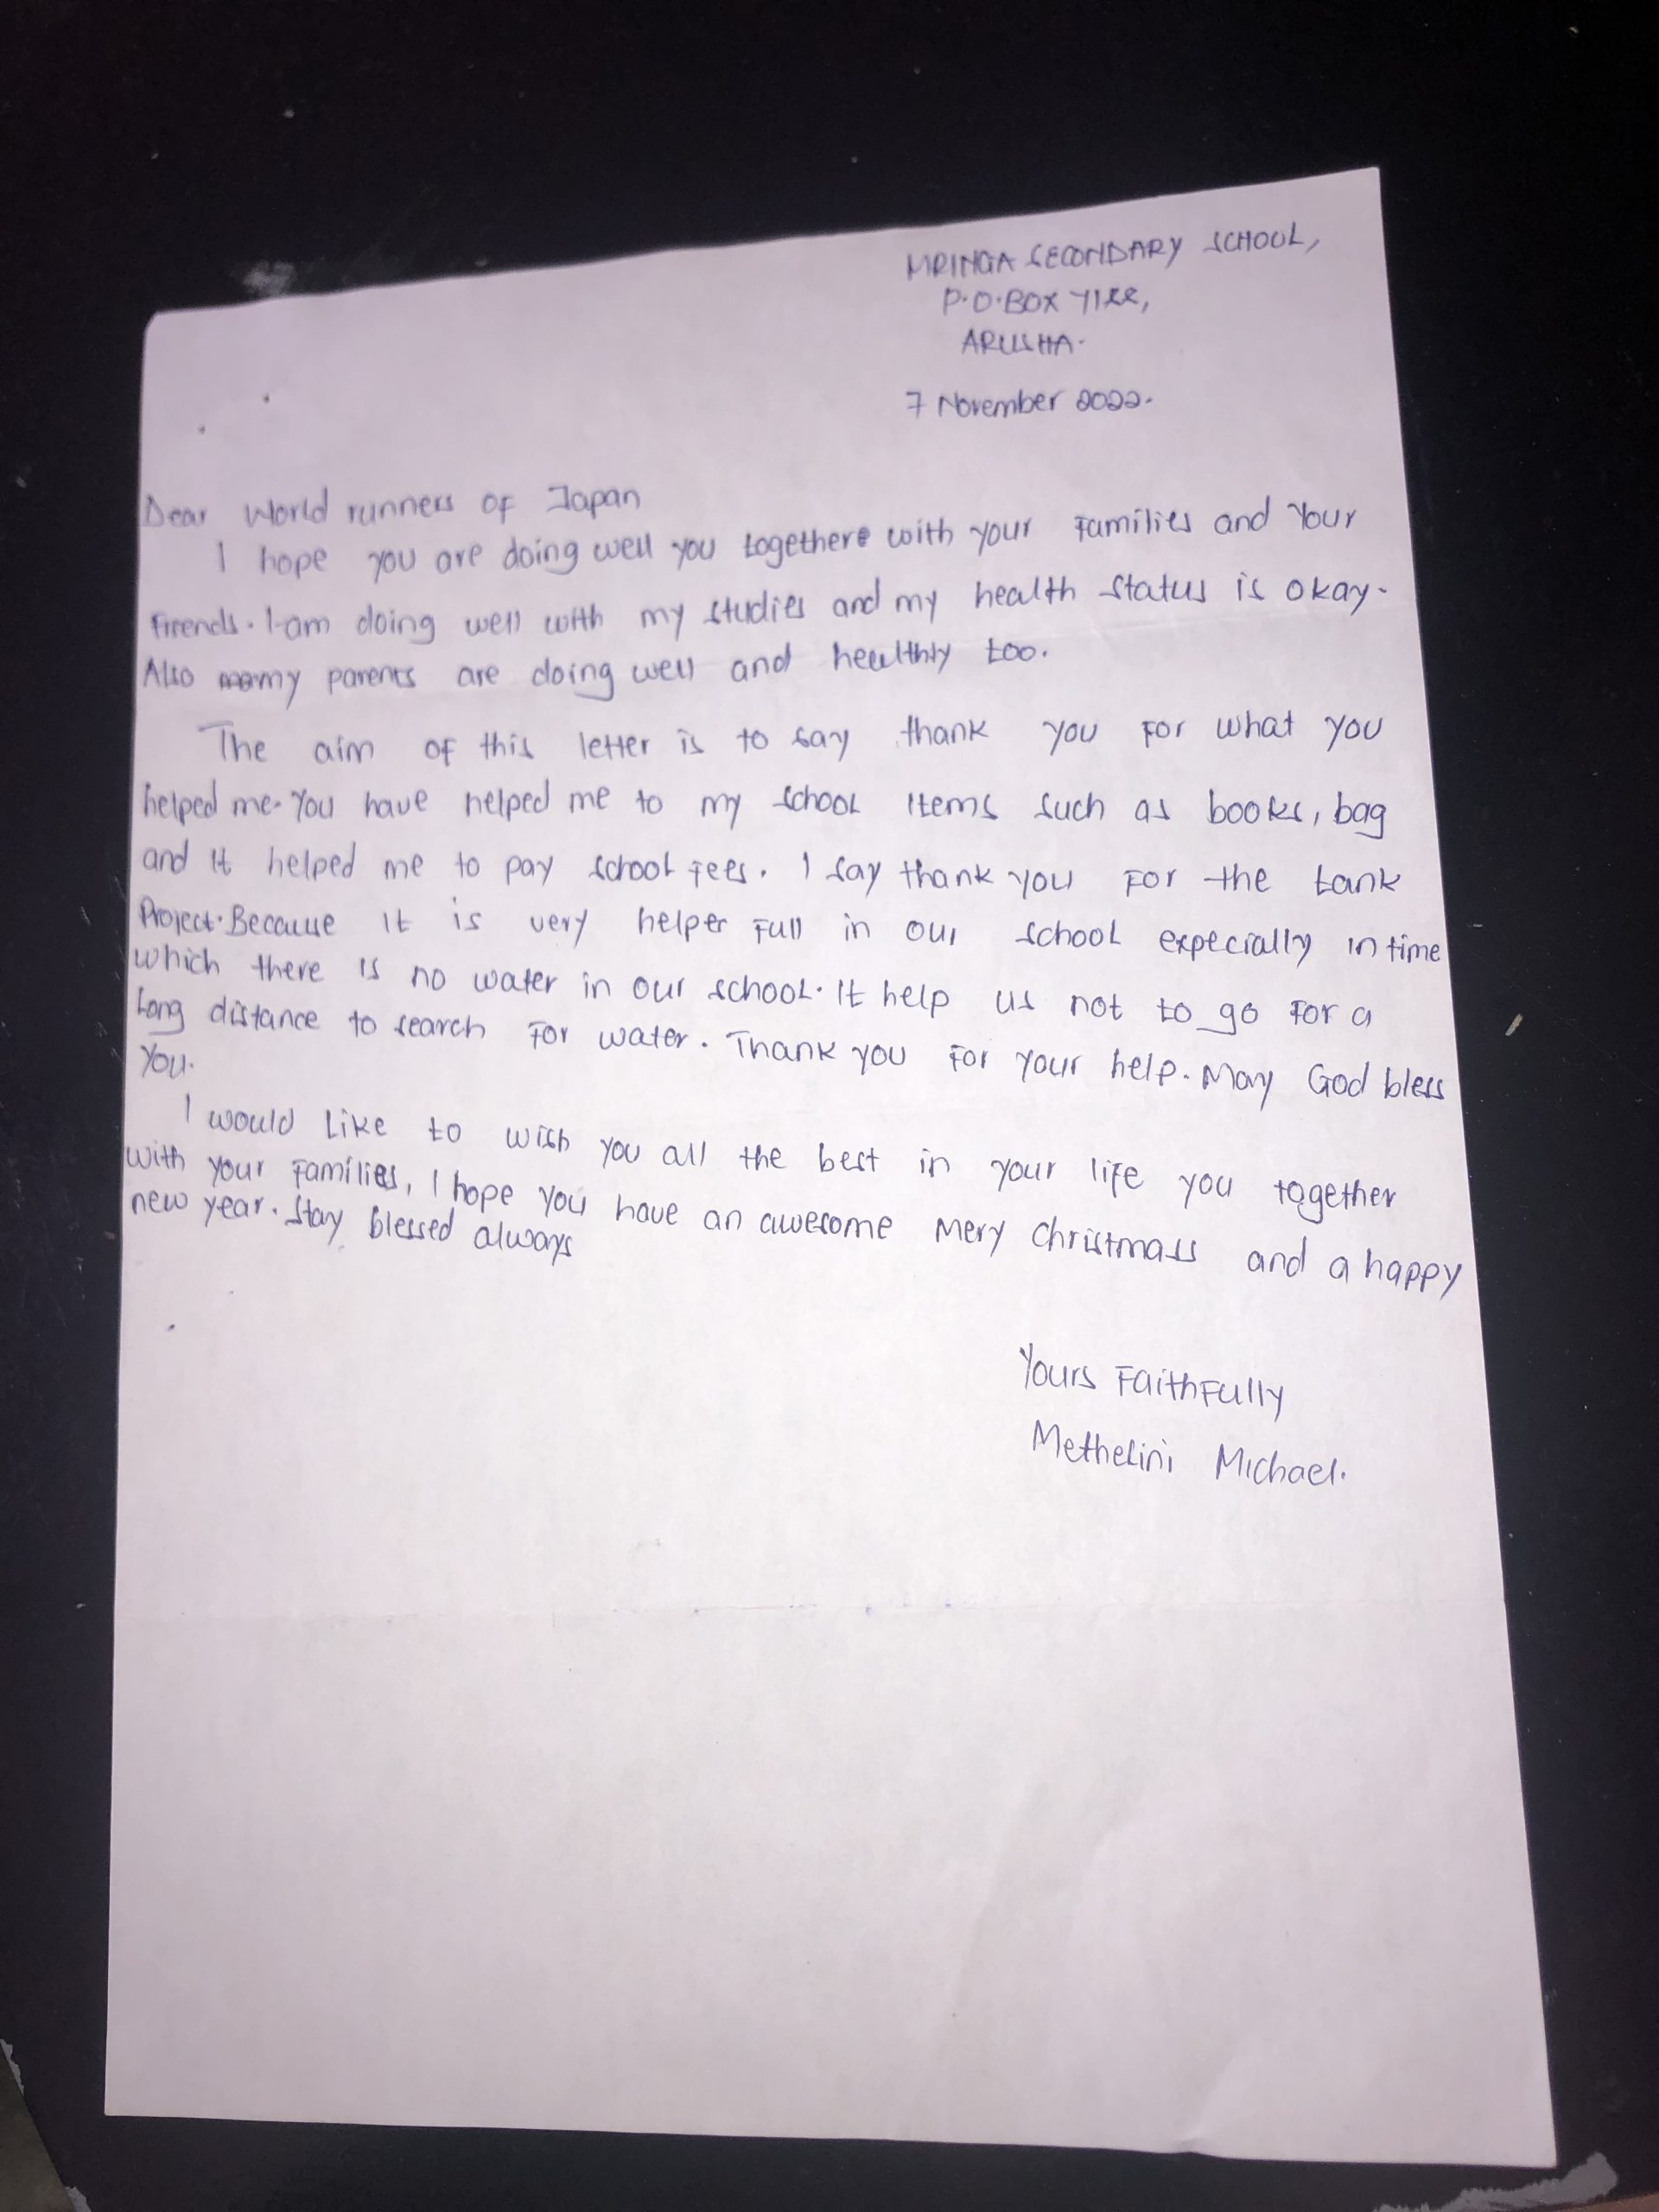 MRINGA SECONDARY SCHOOL,
P.O.BOX
ARUSHA.
7 November 2022.
Dear World runners of Japan
I hope you are doing well you togethere with your Families and Your
Frends. I am doing well with my studies and my health status is okay.
Also my parents are doing well and healthly too.
The aim of this letter is to say thank you For what you
helped me. You have helped me to my school items such as books, bag
and it helped me to pay school Fees. I say thank you For the tank
Project. Because it is very helper Full in our school expecially in time
which there is no water in our school. It help us not to go For a
Long distance to search For water. Thank you For your help. May God bless
You.
I would Like to wish you all the best in your life you together
with your Families, I hope you have an awesome Mery Christmass and a happy
new year. Stay blessed always
Yours FaithFully
Methelini Michael.